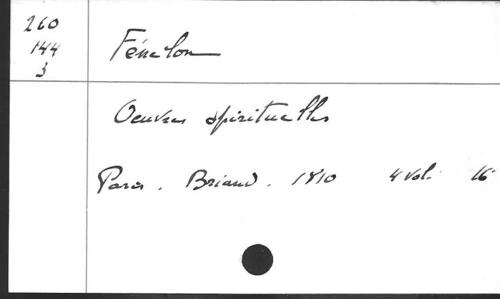 260
144
3
Fénelon
Oeuvres spirituelles
Paris. Briand. 1810 4 vol. 16